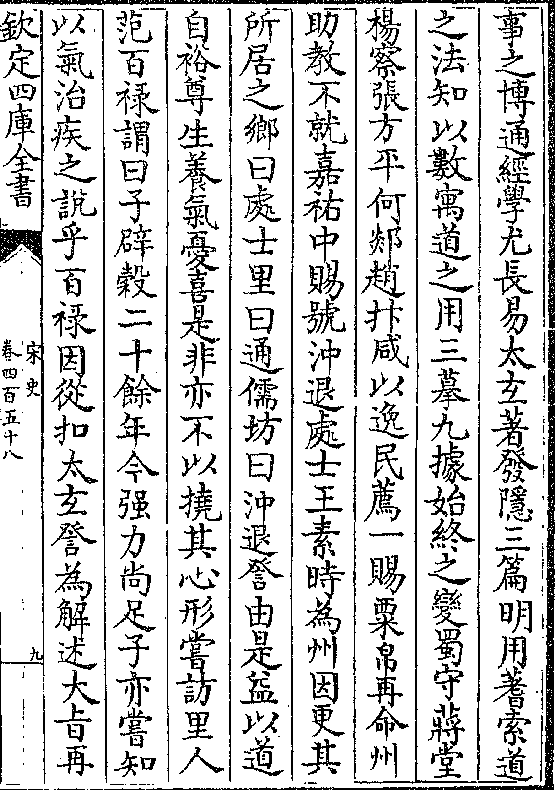 事之博通經學尤長易太𤣥著發隱三篇明用蓍索道
之法知以數寓道之用三摹九據始終之變蜀守蔣堂
楊察張方平何郯趙抃咸以逸民薦一賜粟帛再命州
助教不就嘉祐中賜號沖退處士王素時為州因更其
所居之鄉曰處士里曰通儒坊曰沖退詧由是益以道
自裕尊生養氣憂喜是非亦不以撓其心形嘗訪里人
范百禄謂曰子辟穀二十餘年今强力尚足子亦嘗知
以氣治疾之説乎百禄因從扣太𤣥詧為解述大㫖再
欽定四庫全書
宋史
卷四百五十八
九